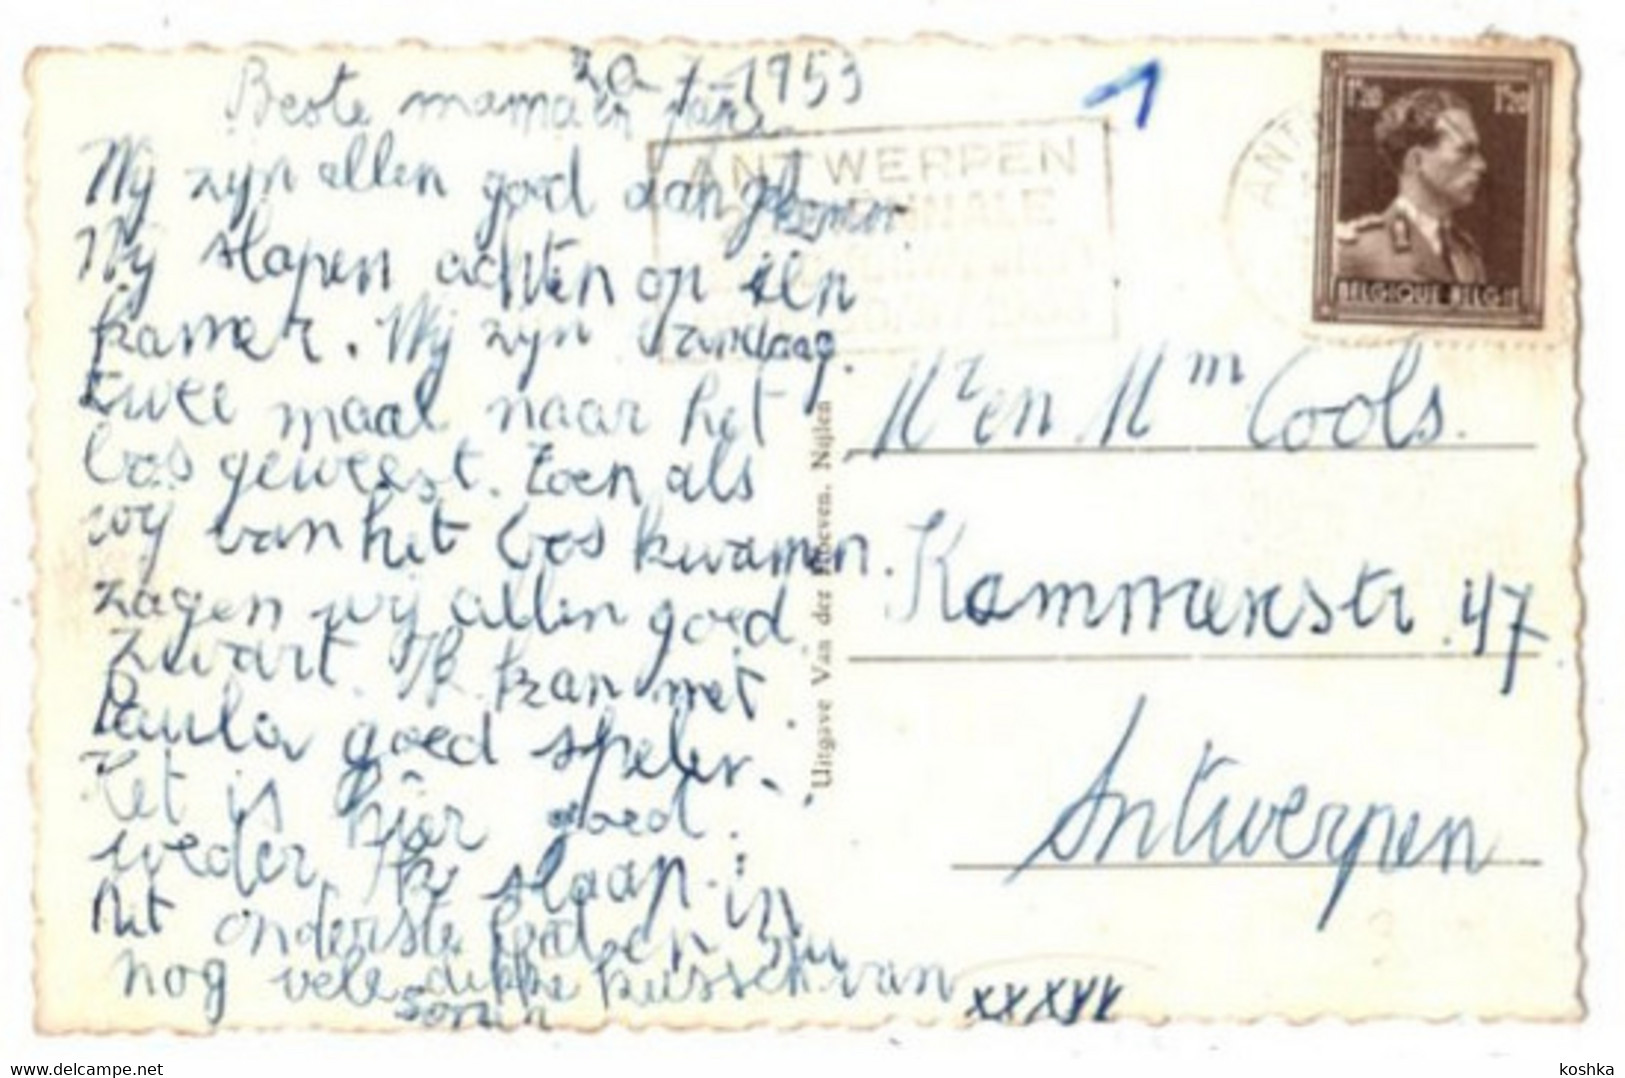 20 - 7 - 1953
Beste mama en papa
Wij zijn allen goed aangekomen.
Wij slapen achten op één
kamer. Wij zijn vandaag
twee maal naar het
bos geweest. Toen als
wij van het bos kwamen.
zagen wij allen goed
zwart. Ik kan met
Paula goed spelen.
Het is hier goed
weder. Ik slaap in
het onderste bed en nu
nog vele dikke kussen van
xxxxx
ANTWERPEN
1953
ANT
1F20 1F20
BELGIQUE BELGIE
Uitgave Van der Hoeven, Nijlen
Mr en Mm Cools.
Kammenstr. 47
Antwerpen
1
koshka